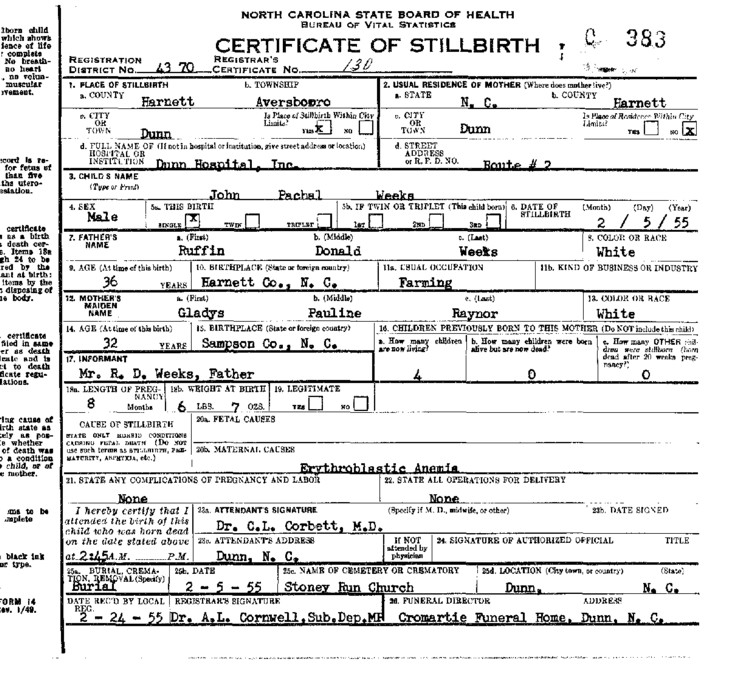 NORTH CAROLINA STATE BOARD OF HEALTH
BUREAU OF VITAL STATISTICS
CERTIFICATE OF STILLBIRTH
383
REGISTRATION DISTRICT No. 43 70 REGISTRAR'S CERTIFICATE No. 130
1. PLACE OF STILLBIRTH b. TOWNSHIP 2. USUAL RESIDENCE OF MOTHER (Where does mother live?)
a. COUNTY a. STATE b. COUNTY
Harnett Aversboro N. C. Harnett
c. CITY OR TOWN Dunn Is Place of Stillbirth Within City Limits? YES X NO c. CITY OR TOWN Dunn Is Place of Residence Within City Limits? YES NO X
d. FULL NAME OF (If not in hospital or institution, give street address or location) HOSPITAL OR INSTITUTION Dunn Hospital, Inc. d. STREET ADDRESS or R. F. D. NO. Route # 2
3. CHILD'S NAME
(Type or Print) John Pachal Weeks
4. SEX 5a. THIS BIRTH 5b. IF TWIN OR TRIPLET (This child born) 6. DATE OF STILLBIRTH (Month) (Day) (Year)
Male SINGLE X TWIN TRIPLET 1ST 2ND 3RD 2 / 5 / 55
7. FATHER'S NAME a. (First) b. (Middle) c. (Last) 8. COLOR OR RACE
Ruffin Donald Weeks White
9. AGE (At time of this birth) 10. BIRTHPLACE (State or foreign country) 11a. USUAL OCCUPATION 11b. KIND OF BUSINESS OR INDUSTRY
36 YEARS Harnett Co., N. C. Farming
12. MOTHER'S MAIDEN NAME a. (First) b. (Middle) c. (Last) 13. COLOR OR RACE
Gladys Pauline Raynor White
14. AGE (At time of this birth) 15. BIRTHPLACE (State or foreign country) 16. CHILDREN PREVIOUSLY BORN TO THIS MOTHER (Do NOT include this child)
32 YEARS Sampson Co., N. C. a. How many children are now living? b. How many children were born alive but are now dead? c. How many OTHER children were stillborn (born dead after 20 weeks pregnancy?)
17. INFORMANT
Mr. R. D. Weeks, Father 4 0 0
18a. LENGTH OF PREGNANCY 18b. WEIGHT AT BIRTH 19. LEGITIMATE
8 Months 6 LBS. 7 OZS. YES NO
CAUSE OF STILLBIRTH 20a. FETAL CAUSES
STATE ONLY MORBID CONDITIONS CAUSING FETAL DEATH (Do NOT use such terms as STILLBIRTH, PREMATURITY, ASPHYXIA, etc.)
20b. MATERNAL CAUSES
Erythroblastic Anemia
21. STATE ANY COMPLICATIONS OF PREGNANCY AND LABOR 22. STATE ALL OPERATIONS FOR DELIVERY
None None
I hereby certify that I attended the birth of this child who was born dead on the date stated above at 2:45 A.M. P.M.
23a. ATTENDANT'S SIGNATURE (Specify if M. D., midwife, or other) 23b. DATE SIGNED
Dr. C.L. Corbett, M.D.
23c. ATTENDANT'S ADDRESS IF NOT attended by physician 24. SIGNATURE OF AUTHORIZED OFFICIAL TITLE
Dunn, N. C.
25a. BURIAL, CREMATION, REMOVAL (Specify) 25b. DATE 25c. NAME OF CEMETERY OR CREMATORY 25d. LOCATION (City town, or country) (State)
Burial 2 - 5 - 55 Stoney Run Church Dunn, N. C.
DATE REC'D BY LOCAL REG. REGISTRAR'S SIGNATURE 26. FUNERAL DIRECTOR ADDRESS
2 - 24 - 55 Dr. A.L. Cornwell, Sub. Dep. Cromartie Funeral Home, Dunn, N. C.
lborn child
which shows
complete
No breath-
no heart
muscular
than five
certificate
as a birth
death cer-
Items 18a
24 to be
by the
at birth:
items by the
disposing of
body.
certificate
filed in same
as death
and is
to death
ing cause of
state as
as pos-
whether
of death was
a condition
child, or of
mother.
to be
black ink
or type.
FORM 14
1/49.